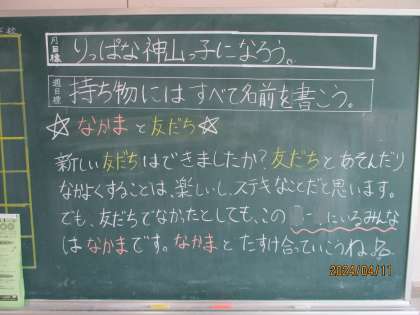 月目標 りっぱな神山っ子になろう。
週目標 持ち物にはすべて名前を書こう。
☆なかまと友だち☆
新しい友だちはできましたか？友だちとあそんだり
なかよくすることは、楽しいし、ステキなことだと思います。
でも、友だちでなかったとしても、この にいるみんな
はなかまです。なかまとたすけ合っていこうね♪
2024/04/11